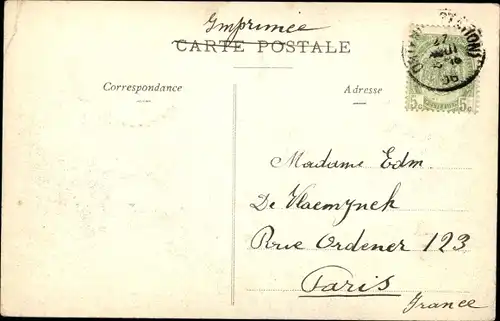 Imprimée
CARTE POSTALE
Correspondance
Adresse
27
06
5c 5c
Madame Edm
De Vlaemynck
Rue Ordener 123
Paris
France